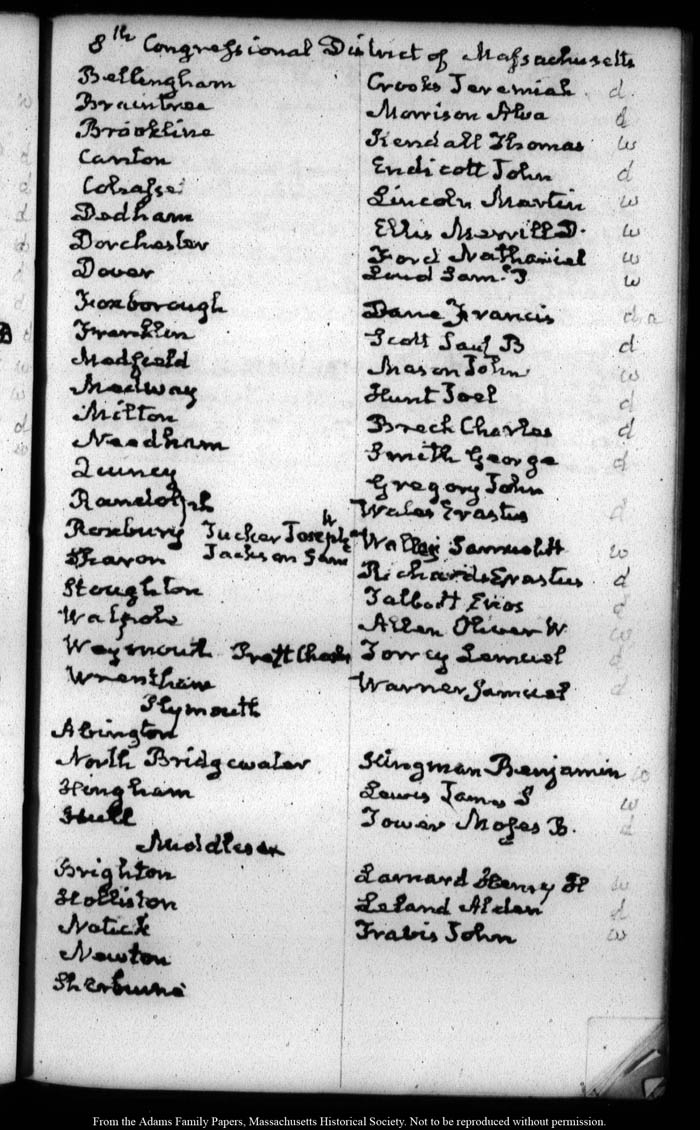 8th Congressional District of Massachusetts
Bellingham Crooks Jeremiah d.
Braintree Morrison Alva d
Brookline Kendall Thomas w
Canton Endicott John d
Cohasset Lincoln Martin w
Dedham Ellis Merrill D. w
Dorchester Ford Nathaniel w
Dover Loud Saml. T w
Foxborough Dane Francis d. a
Franklin Scott Saul B d
Medfield Mason John w
Medway Hunt Joel d
Milton Breck Charles d
Needham Smith George d
Quincy Gregory John
Randolph Wales Erastus d
Roxbury Tucker Joseph W Samuel H w
Sharon Jackson Sam Richards Erastus d
Stoughton Talbott Enos d
Walpole Allen Oliver W w
Weymouth Pratt Charles Torrey Lemuel d
Wrentham Warner Samuel d
Plymouth
Abington
North Bridgewater Kingman Benjamin w
Hingham Lewis James S w
Hull Tower Moses B. d
Middlesex
Brighton Larnard Henry H w
Holliston Leland Alden d
Natick Travis John w
Newton
Sherburne
From the Adams Family Papers, Massachusetts Historical Society. Not to be reproduced without permission.